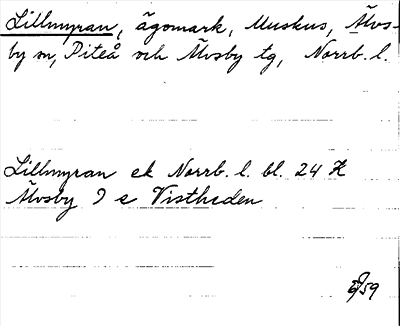 Lillmyran, ägomark, Muskus, Älvs-
by sn, Piteå och Älvsby tg, Norrb. l.
Lillmyran ek Norrb. l. bl. 24
Älvsby 9 e Vistheden